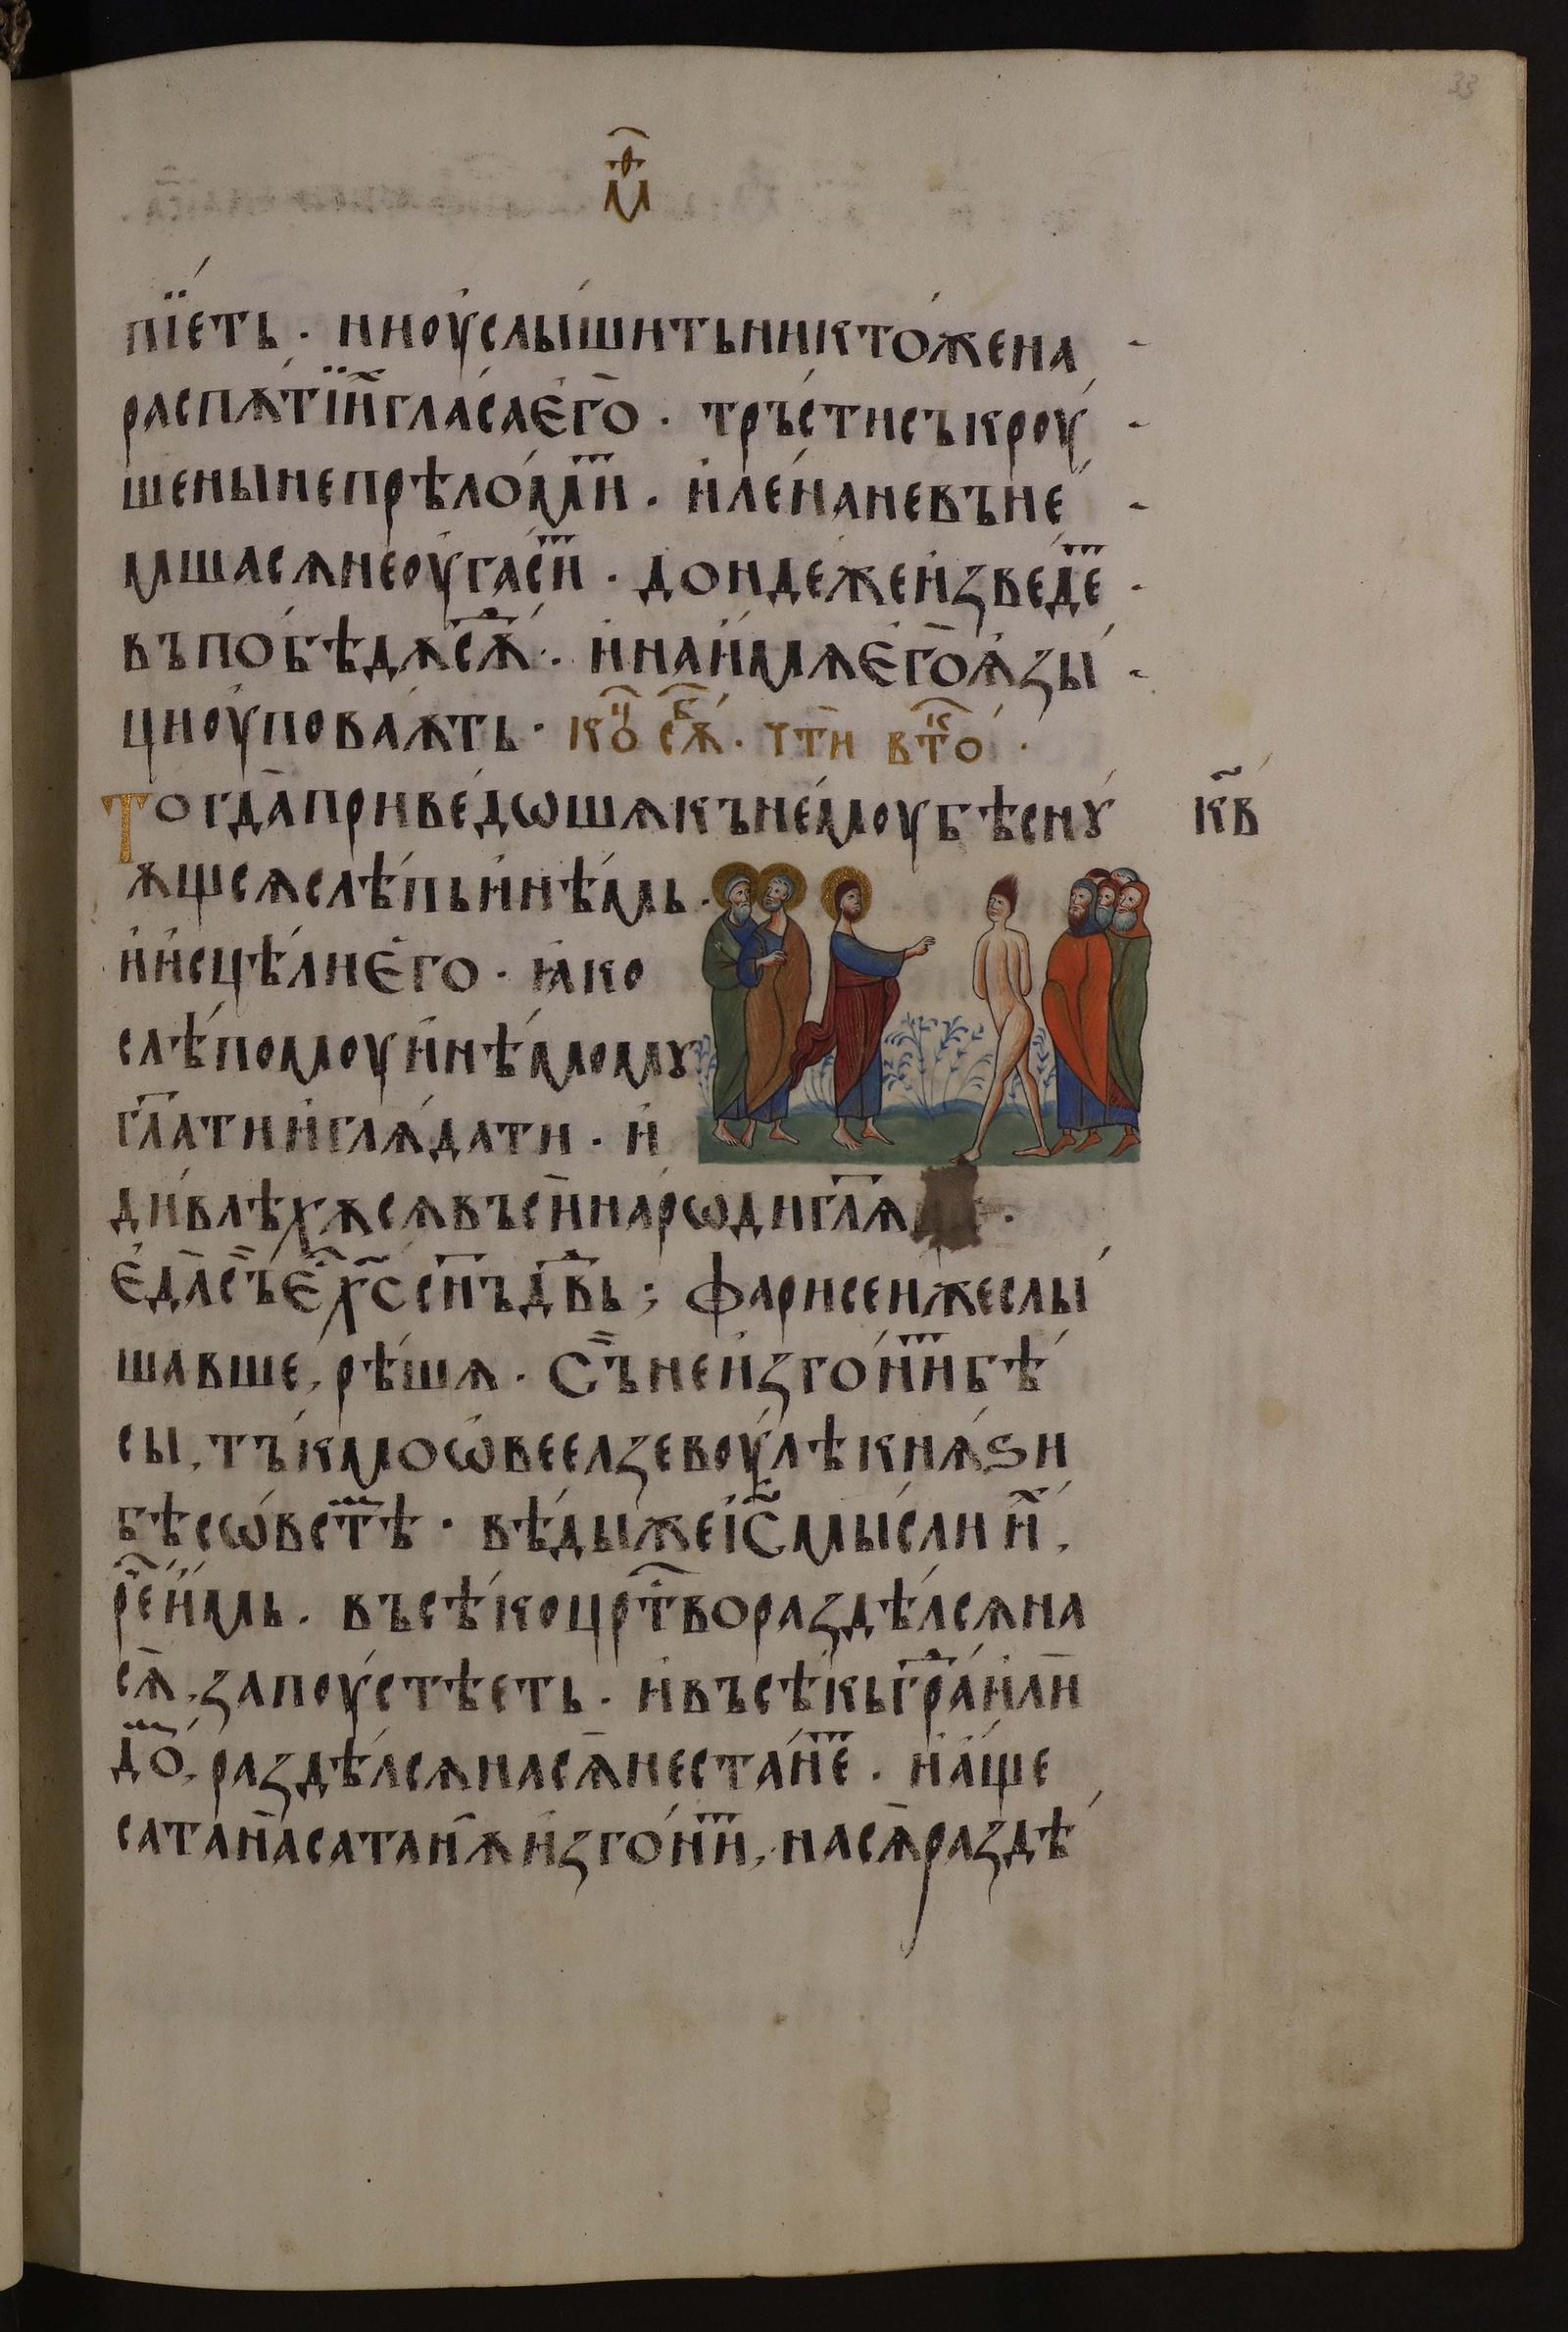 мⷴ҇
пїеть · и҆ноу҆слы́шитьникто́жена
распѫ́тїиⷯгла́саеⷢ҇о · тръ́стисъкроу́
шеныиепрѣло́миⷮ · и҆ле́наневъне́
мшасѧнеоуга́сиⷮ · до́ндежеи҆зведеⷮ
въпо́бѣдѫсѫⷣ · и҆наи҆́мѧеⷢ҇оѧ҆зы́
циоу҆пова́ѫть · коⷰ҇ сѫⷠ҇ · чтⷩи втоⷦ҇ ·
Тогда̄приве́дѡшѧкъне́моубѣснꙋ́ кв҃
ѫщсѧслѣ́пьи҆нѣ́мь ·
и҆и҆сцѣ́лиего · ꙗ҆ко
слѣ́помоуи҆нѣ́момꙋ
гл҃атии҆глѧ́дати · и҆
ди́влѣхѫсѧвъсинⷩаро́дигл҃ѧ ·
е҆да̄съ̏еⷭ҇х҃ссн҃ъдв҃ь ; фарисеижеслы́
шавше, рѣ́шѧ · Съ̏неи҆зго́ниⷮбѣ́
сы, тъ́кмоѡ҆веелзевоу́лѣкнѧ́ѕи
бѣсѡ́встⷨѣ · вѣ́дыжеі҆с҃мы́слииⷯ,
реⷱ҇и҆́мь · въсѣ́коцрⷭ҇твораздѣ́лсѧна
сѧ̄, запоу́стѣеть · и҆въсѣ́кьграⷣи҆лиⷩ
доⷨ, раздѣ́лсѧнасѧ̄неста́неⷮ · и҆а҆́ще
сатана̄сатанѫ̄и҆зго́ниⷮ, насѧ̄раздѣ́